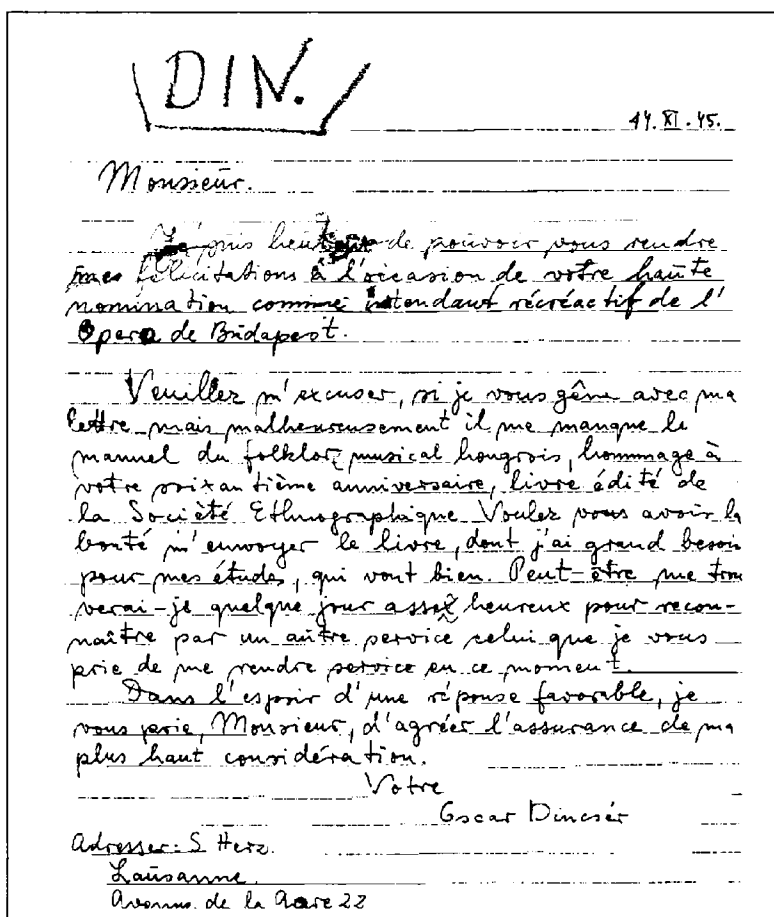 DIN.
14. XI. 45.
Monsieur.
Je suis heureux de pouvoir vous rendre
mes félicitations à l'occasion de votre haute
nomination comme intendant récréactif de l'
Opera de Budapest.
Veuillez m'excuser, si je vous gêne avec ma
lettre mais malheureusement il me manque le
manuel du folklor musical hongrois, hommage à
votre soixantième anniversaire, livre édité de
la Société Ethnographique Voulez vous avoir la
bonté m'envoyer le livre, dont j'ai grand besoin
pour mes études, qui vont bien. Peut-être me trou
verai-je quelque jour assez heureux pour recon-
naître par un autre service celui que je vous
prie de me rendre service en ce moment.
Dans l'espoir d'une réponse favorable, je
vous prie, Monsieur, d'agréer l'assurance de ma
plus haut considération.
Votre
Oscar Dincsér
Adresser: S. Herz.
Lausanne.
Avenue de la Gare 22